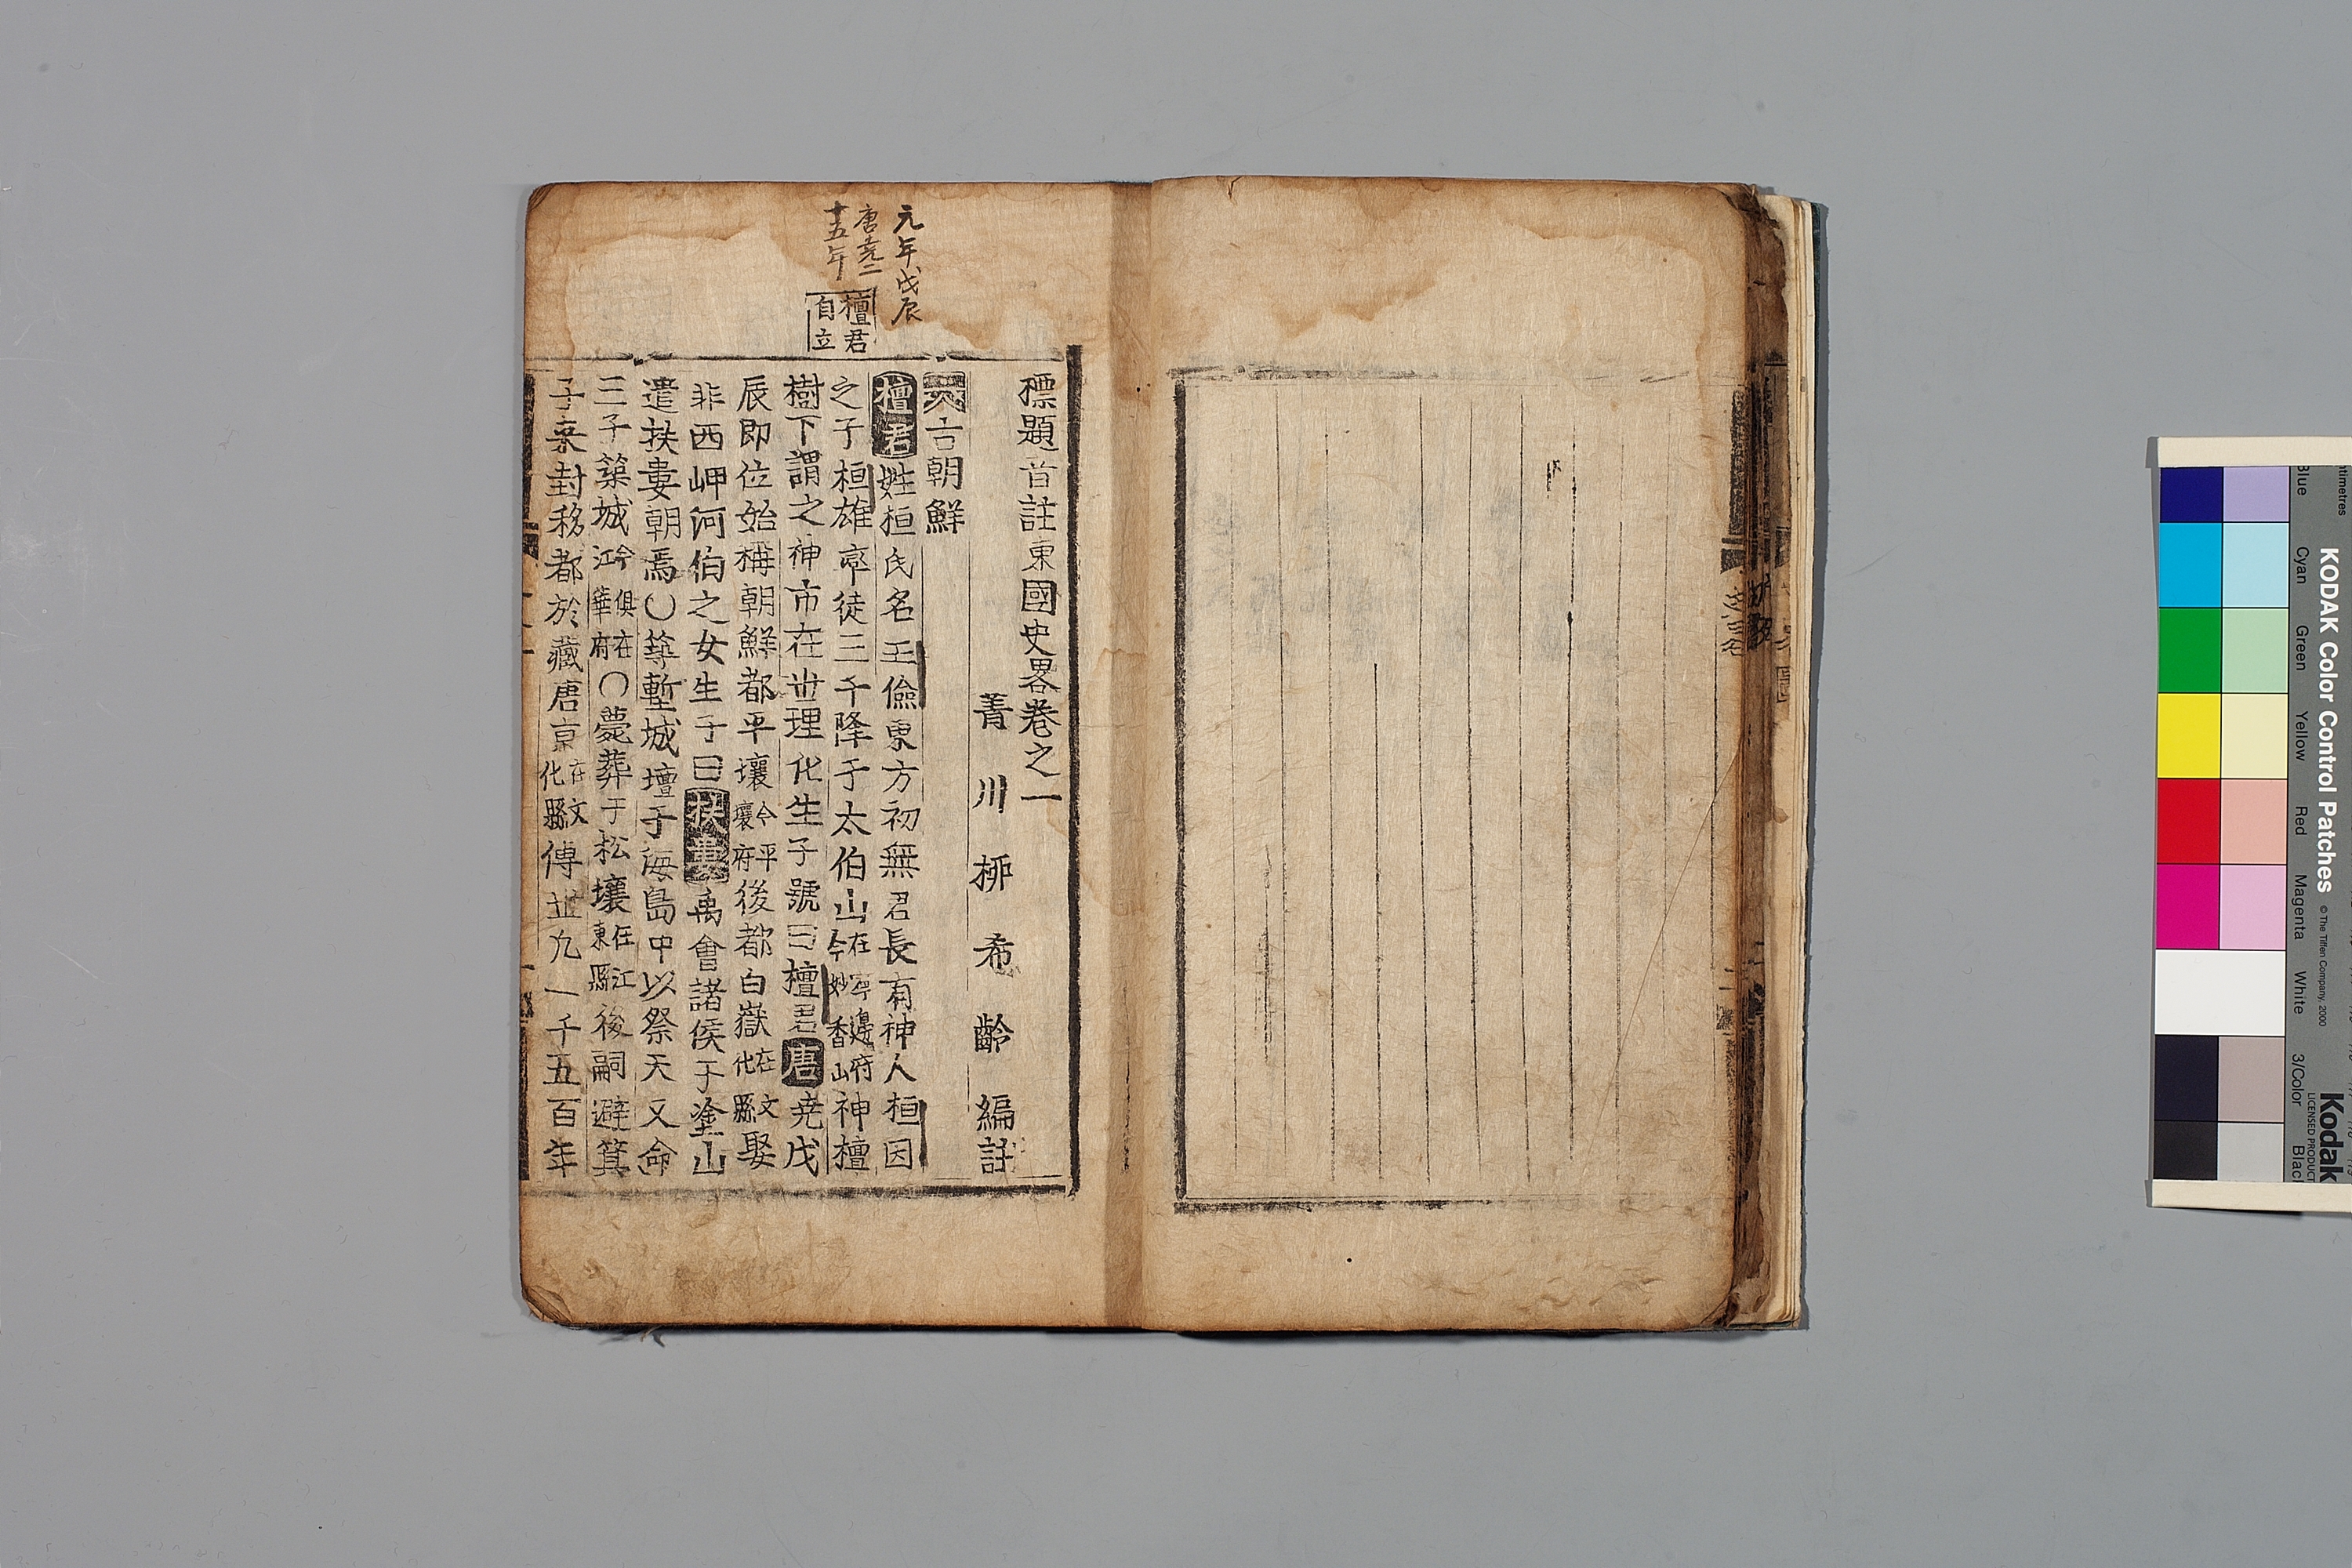 元年戊辰
唐堯二
十五年
檀君
自立
標題首註東國史畧卷之一
菁川柳希齡編註
古朝鮮
檀君姓桓氏名王儉東方初無君長有神人桓因
之子桓雄率徒三千降于太伯山在寧邊府今妙香山神檀
樹下謂之神市在世理化生子號曰檀君唐尭戊
辰即位始稱朝鮮都平壤今平壤府後都白嶽在文化縣娶
非西岬河伯之女生子曰扶婁禹會諸侯于塗山
遣扶婁朝焉○築塹城壇于海島中以祭天又命
三子築城俱在今江華府○薨葬于松壤在江東縣後嗣避箕
子来封移都於藏唐京在文化縣傳世九一千五百年
KODAK Color Control Patches
© The Tiffen Company, 2000
Kodak
LICENSED PRODUCT
Blue
Cyan
Green
Yellow
Red
Magenta
White
3/Color